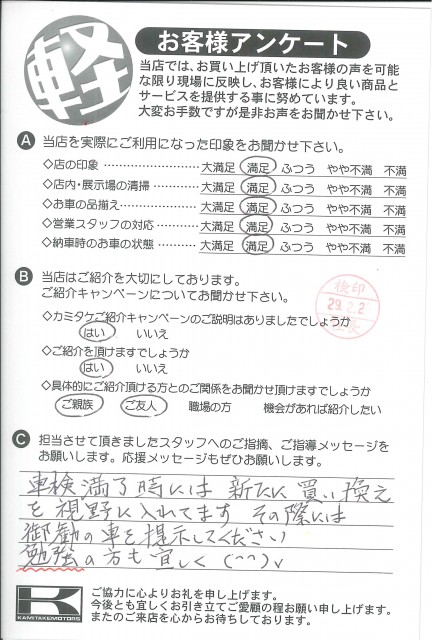 軽
お客様アンケート
当店では、お買い上げ頂いたお客様の声を可能
な限り現場に反映し、お客様により良い商品と
サービスを提供する事に努めています。
大変お手数ですが是非お声をお聞かせ下さい。
A 当店を実際にご利用になった印象をお聞かせ下さい。
◇店の印象 ………………… 大満足 満足 ふつう やや不満 不満
◇店内・展示場の清掃 ………… 大満足 満足 ふつう やや不満 不満
◇お車の品揃え ……………… 大満足 満足 ふつう やや不満 不満
◇営業スタッフの対応 ………… 大満足 満足 ふつう やや不満 不満
◇納車時のお車の状態 ………… 大満足 満足 ふつう やや不満 不満
B 当店はご紹介を大切にしております。
ご紹介キャンペーンについてお聞かせ下さい。
検印
29.2.2
◇カミタケご紹介キャンペーンのご説明はありましたでしょうか
はい いいえ
◇ご紹介を頂けますでしょうか
はい いいえ
◇具体的にご紹介頂ける方とのご関係をお聞かせ頂けますでしょうか
ご親族 ご友人 職場の方 機会があれば紹介したい
C 担当させて頂きましたスタッフへのご指摘、ご指導メッセージを
お願いします。応援メッセージもぜひお願いします。
車検満了時には 新たに買い換え
を視野に入れてます その際には
御勧の車を提示してください
勉強の方も宜しく (^^)v
K
KAMITAKEMOTORS
ご協力に心よりお礼を申し上げます。
今後とも宜しくお引き立てご愛顧の程お願い申し上げます。
またのご来店を心からお待ちしております。